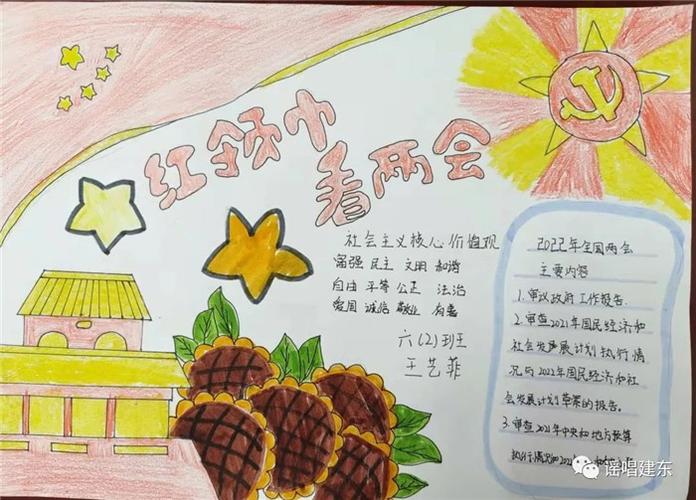 红领巾
看两会
社会主义核心价值观
富强 民主 文明 和谐
自由 平等 公正 法治
爱国 诚信 敬业 友善
六(2)班
王艺菲
2022年全国两会
主要内容
1.审议政府工作报告.
2.审查2021年国民经济和
社会发展计划执行情
况与2022年国民经济和社
会发展计划草案的报告。
3.审查2021年中央和地方预算
执行情况和2022
谣唱建东